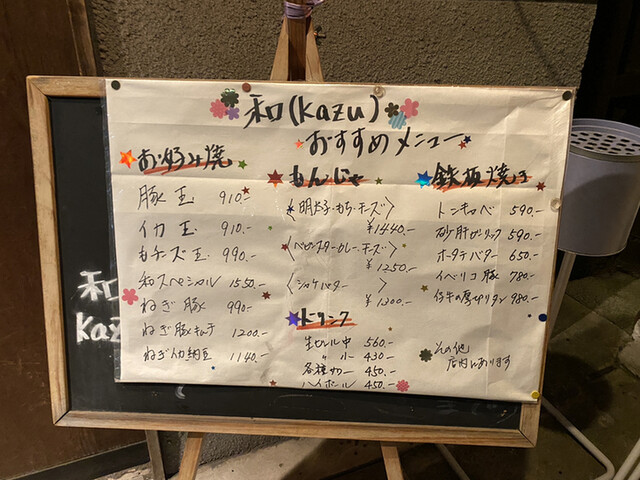 和(kazu)
おすすめメニュー
お好み焼
豚玉 910.-
イカ玉 910.-
もチーズ玉 990.-
和スペシャル 1550.-
ねぎ豚 990.-
ねぎ豚キムチ 1200.-
ねぎイカ納豆 1140.-
もんじゃ
〈明太子・もち・チーズ〉
¥1440.-
〈ベビースターカレー・チーズ〉
¥1250.-
¥1200.-
ドリンク
生ビール中 560.-
〃 小 430.-
各種サワー 450.-
ハイボール 450.-
鉄板焼き
トンキャベ 590.-
砂肝ガーリック 590.-
ホタテバター 650.-
イベリコ豚 780.-
牛の厚切りタン 980.-
その他
店内にあります
和
kaz